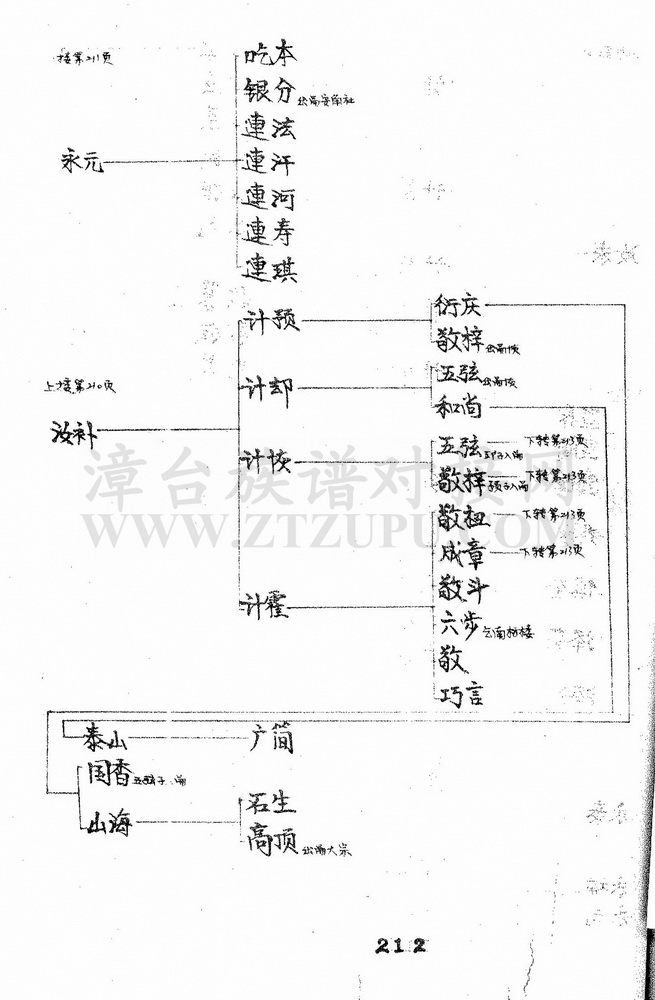 接第211页
吃本
银分
連法
永元
連汗
連河
連寿
連琪
计预
衍庆
敬梓 出嗣恢
上接第210页
计却
五弦 出嗣恢
和尚
汝补
计恢
五弦 下转第213页
敬梓 预子入嗣 下转第213页
敬扭 下转第213页
成章 下转第213页
计霍
敬斗
六步
敬
巧言
泰山
广简
国香
山海
石生
高顶 出嗣大宗
漳台族谱对接网
WWW.ZTZUPU.COM
212